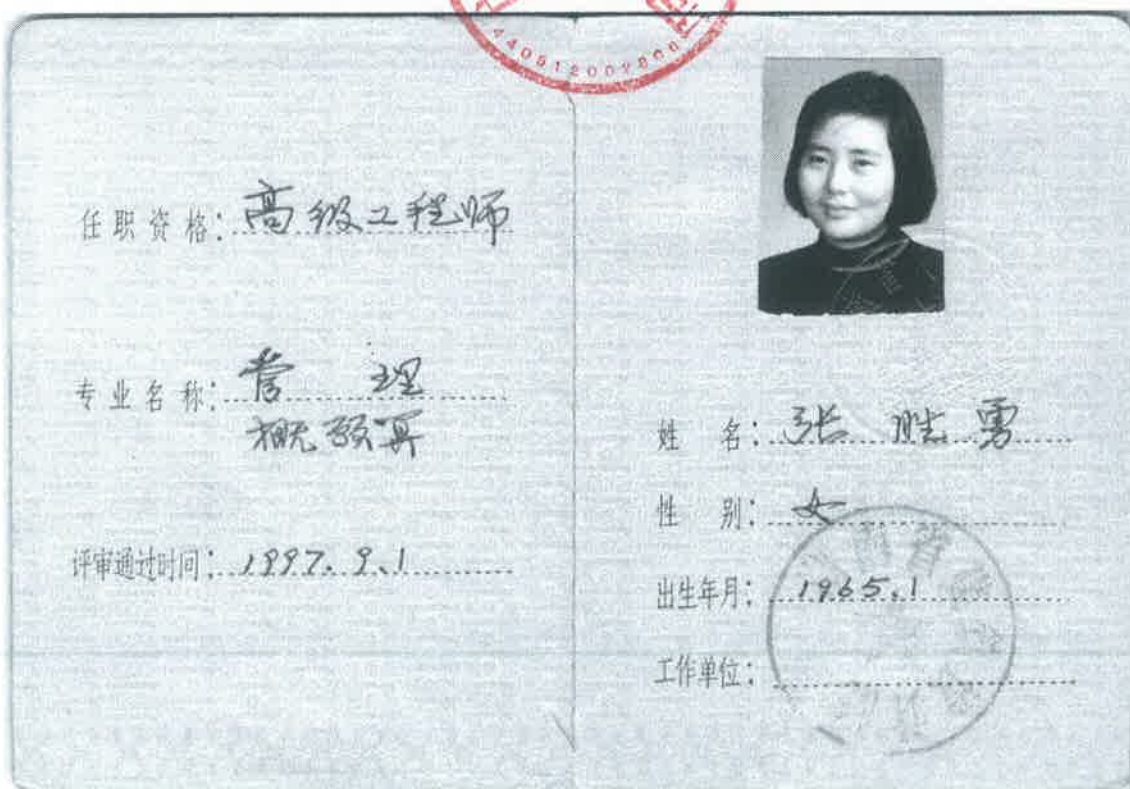 440912002800
任职资格：高级工程师
专业名称：管理
概预算
评审通过时间：1997.9.1
姓名：张 雪
性别：女
出生年月：1965.1
工作单位：
省